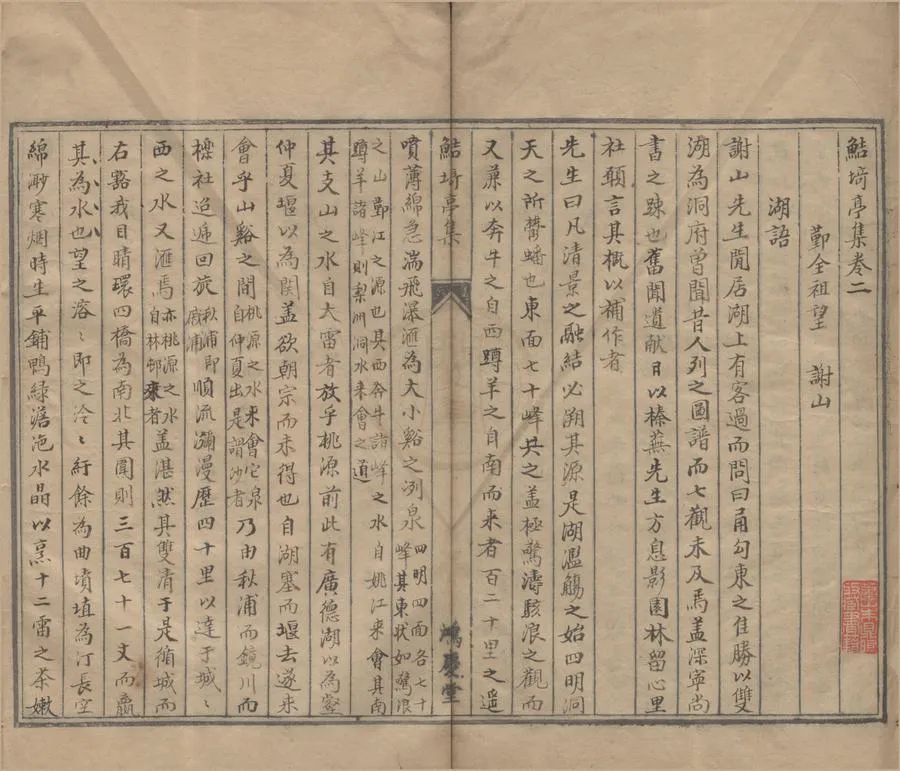 鮚埼亭集卷二
鄞全祖望 謝山
湖語
謝山先生閒居湖上有客過而問曰甬勾東之佳勝以雙
湖為洞府曾聞昔人列之圖譜而七觀未及焉盖深寧尚
書之踈也舊聞遺獻日以榛蕪先生方息影園林留心里
社願言其概以補作者
先生曰凡清景之融結必溯其源是湖濫觴之始四明洞
天之所欝蟠也東面七十峰共之盖極驚濤駭浪之觀而
又蒹以奔牛之自西蹲羊之自南而來者百二十里之遥
鮚埼亭集
鴻慶堂
噴薄綿急湍飛瀑滙為大小谿之冽泉四明四面各七十
峰其東状如驚浪
之山鄞江之源也其西奔牛諸峰之水自姚江来會其南
蹲羊諸峰則梨洲洞水来會之道
其支山之水自大雷者放乎桃源前此有廣德湖以為壑
仲夏堰以為関盖欲朝宗而未得也自湖塞而堰去遂来
會乎山谿之間桃源之水来會它泉
自仲夏出是謂沙者乃由秋浦而鏡川而
櫟社迢遞回旋秋浦即
戚浦順流瀰漫歷四十里以達于城〻
西之水又滙焉亦桃源之水
自林邨來者盖湛然其雙清于是循城而
右豁我目睛環四橋為南北其圍則三百七十一丈而羸
其為水也望之溶〻即之泠〻紆餘為曲墳埴為汀長空
綿渺寒烟時生平鋪鴨綠潺滟水晶以烹十二雷之茶嫩